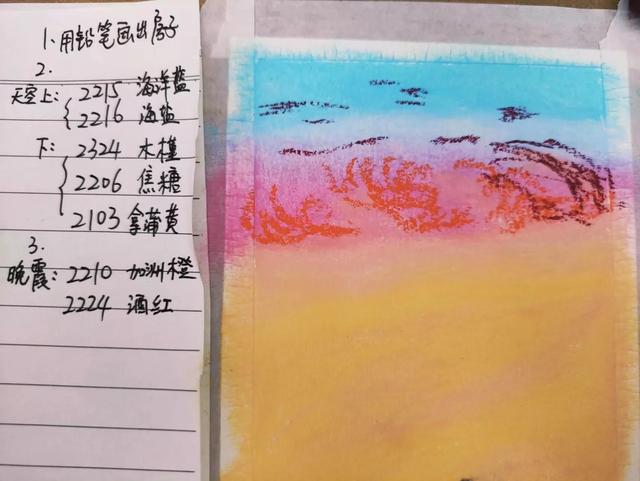 1、用铅笔画出房子
2.
天空上: 2215 海洋蓝
2216 海盐
下: 2324 木槿
2206 焦糖
2103 拿蒲黄
3.
晚霞: 2210 加洲橙
2224 酒红